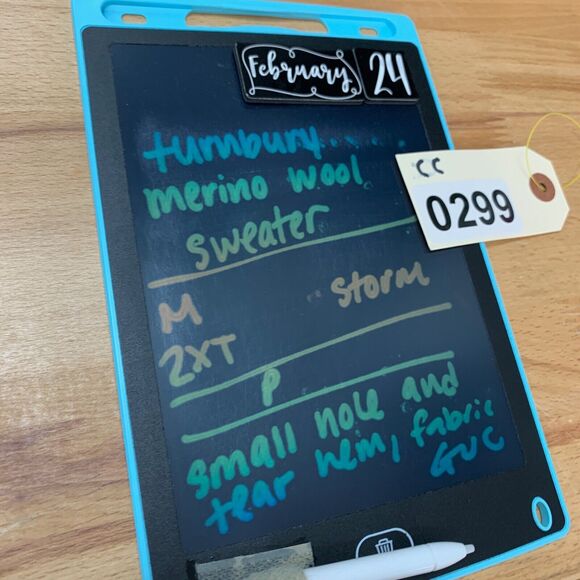 February 24
turnbury......
merino wool
sweater
CC
0299
M storm
2XT
P
small hole and
tear hem, fabric
GUC